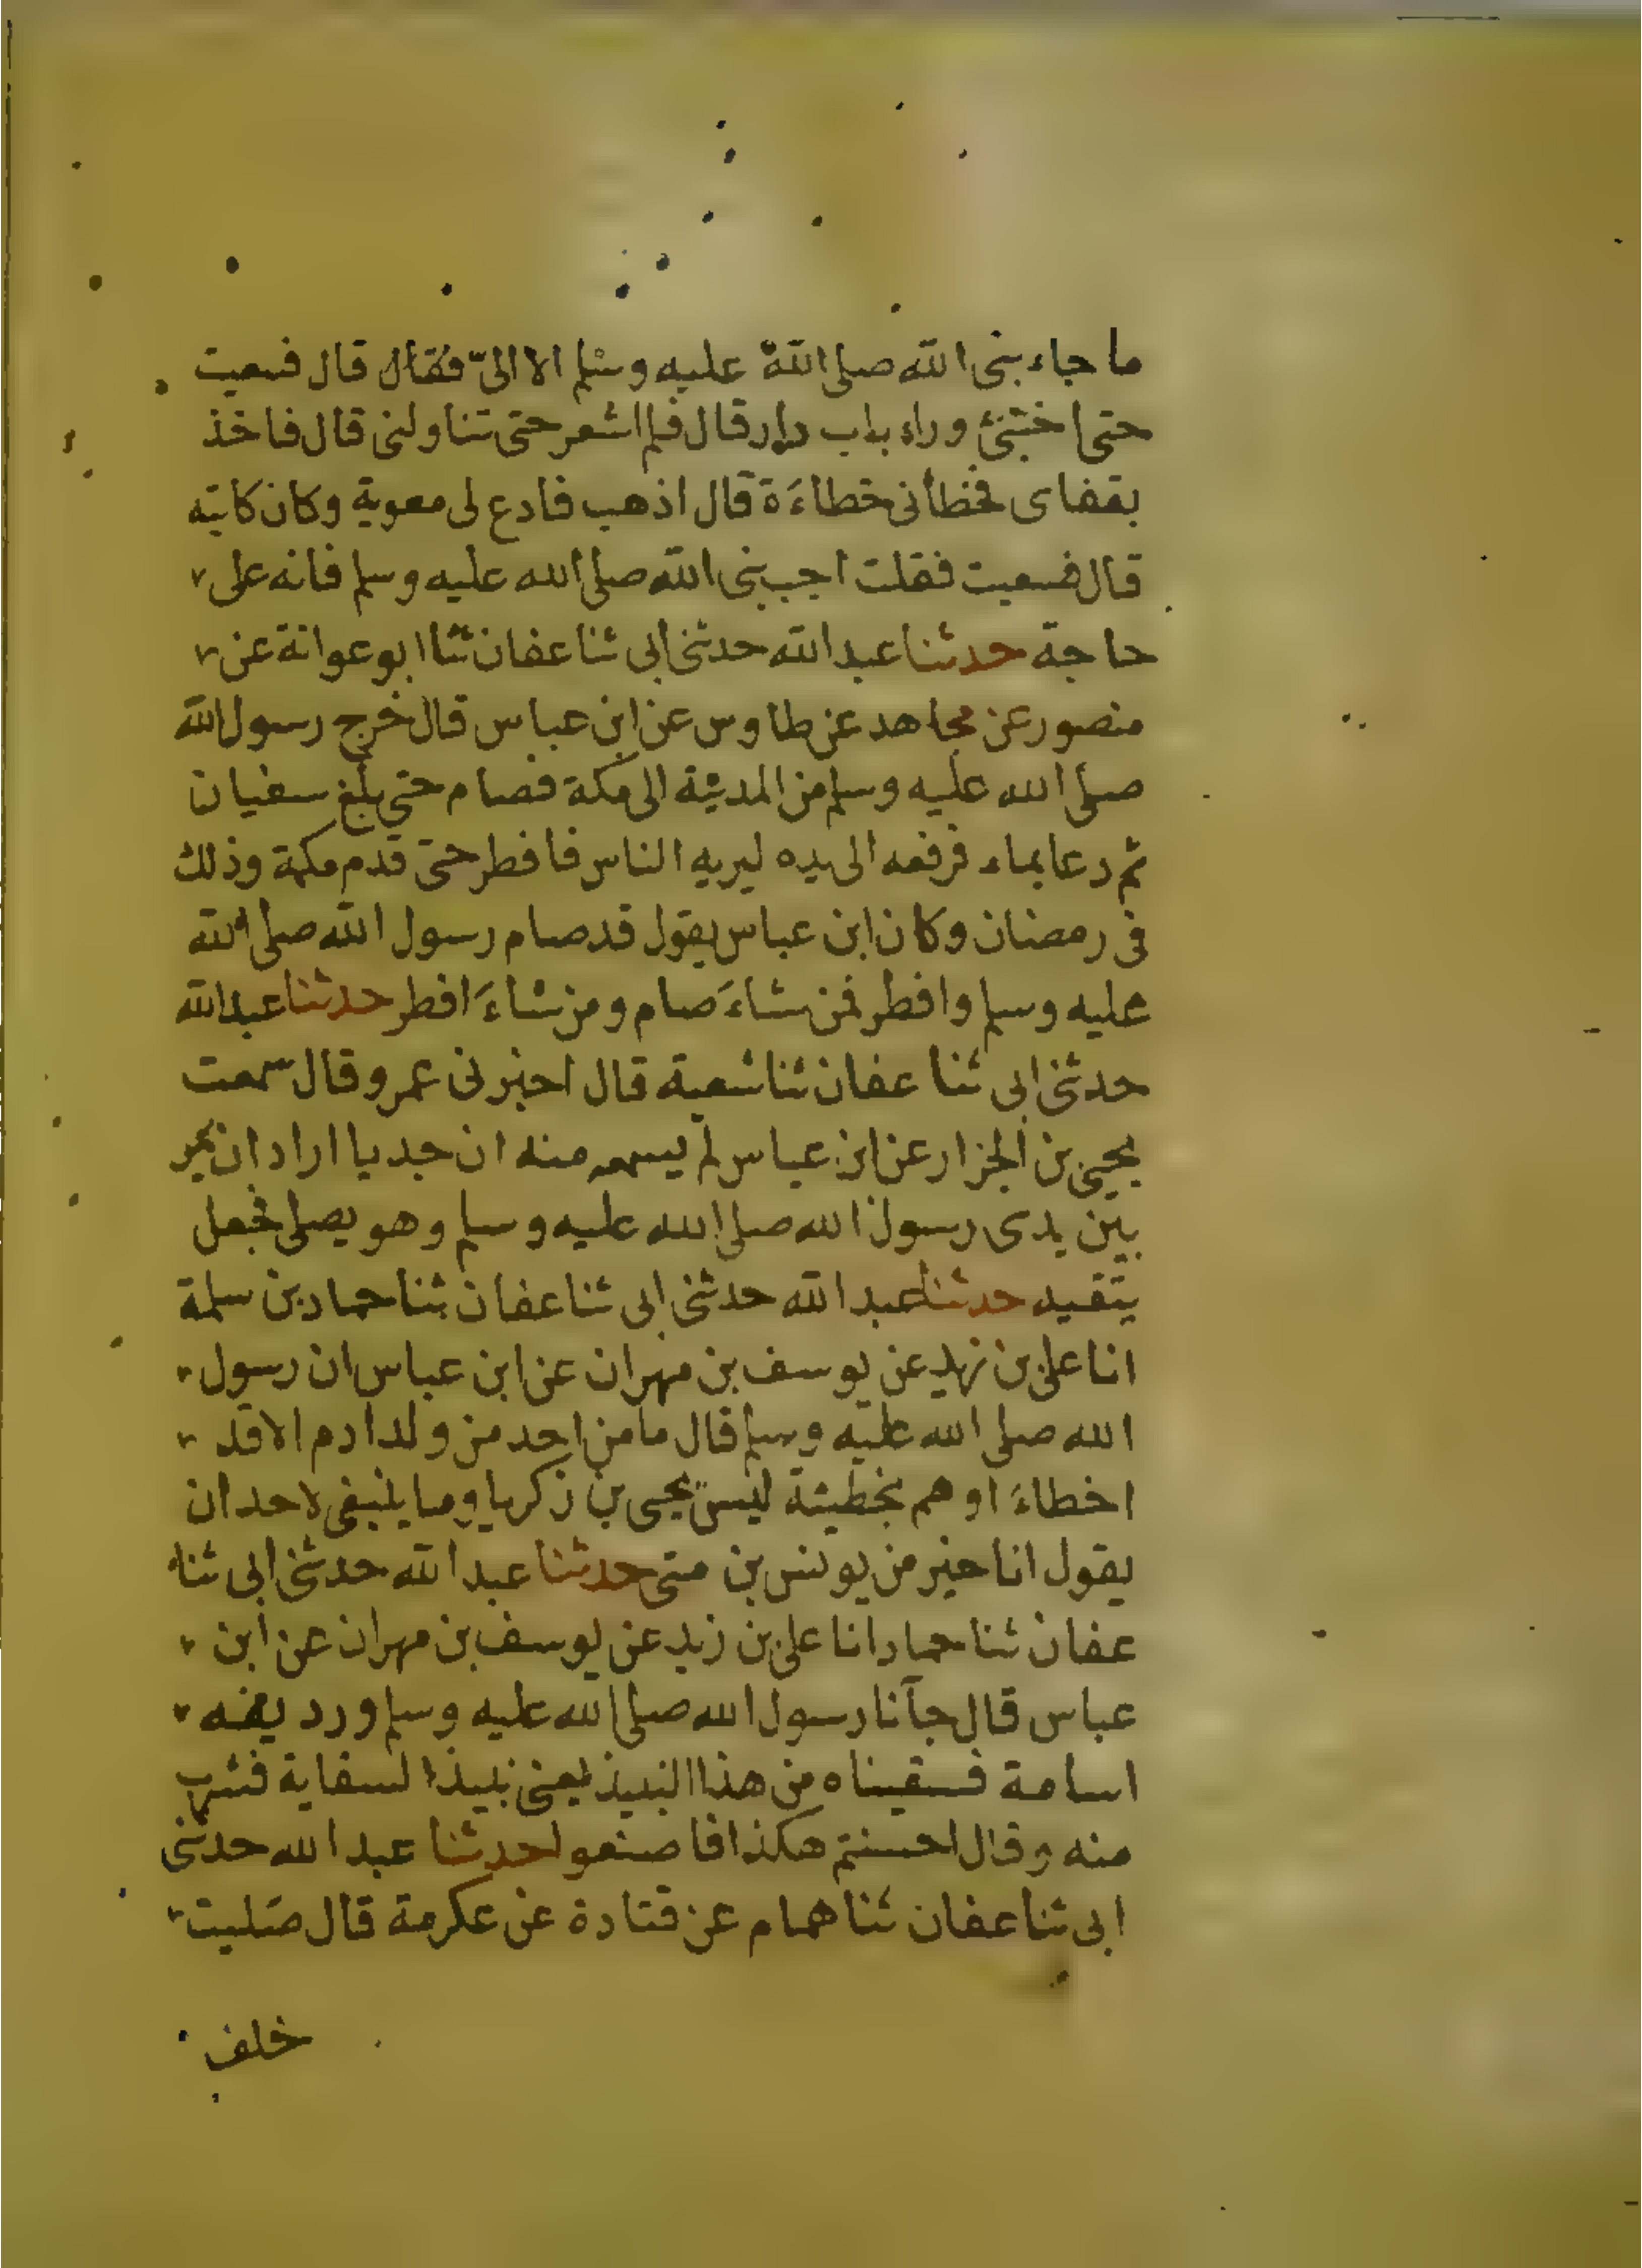 ما جاء نبى الله صلى الله عليه وسلم الا الىّ فقال قال فسعيت
حتى اختبئ وراء باب دار قال فلم اشعر حتى تناولنى قال فاخذ
بقفاى فحطأنى حطاءَة قال اذهب فادع لى معوية وكان كاتبه
قال فسعيت فقلت اجب نبى الله صلى الله عليه وسلم فانه على
حاجة حدثنا عبد الله حدثنى ابى ثنا عفان ثنا ابو عوانة عن
منصور عن مجاهد عن طاوس عن ابن عباس قال خرج رسول الله
صلى الله عليه وسلم من المدينة الى مكة فصام حتى بلغ سفيان
ثم دعا بماء فرفعه الى يده ليريه الناس فافطر حتى قدم مكة وذلك
فى رمضان وكان ابن عباس يقول قد صام رسول الله صلى الله
عليه وسلم وافطر فمن شاءَ صام ومن شاءَ افطر حدثنا عبد الله
حدثنى ابى ثنا عفان ثنا شعبة قال اخبرنى عمرو قال سمعت
يحيى بن الجزار عن ابن عباس لم يسمعه منه ان جديا اراد ان يمر
بين يدى رسول الله صلى الله عليه وسلم وهو يصلى فجعل
يتقيه حدثنا عبد الله حدثنى ابى ثنا عفان ثنا حماد بن سلمة
انا على بن زيد عن يوسف بن مهران عن ابن عباس ان رسول
الله صلى الله عليه وسلم قال ما من احد من ولد ادم الا قد
اخطاءَ او هم بخطيئة ليس يحيى بن زكريا وما ينبغى لاحد ان
يقول انا خير من يونس بن متى حدثنا عبد الله حدثنى ابى ثنا
عفان ثنا حماد انا على بن زيد عن يوسف بن مهران عن ابن
عباس قال جآنا رسول الله صلى الله عليه وسلم ورديفه
اسامة فسقيناه من هذا النبيذ يعنى نبيذ السقاية فشرب
منه وقال احسنتم هكذا فاصنعوا حدثنا عبد الله حدثنى
ابى ثنا عفان ثنا همام عن قتادة عن عكرمة قال صليت
خلف